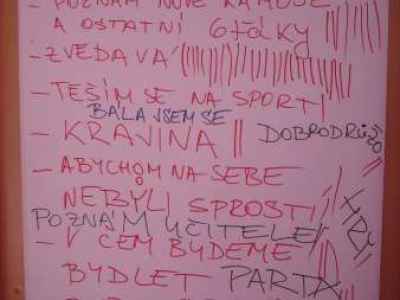 - POZNÁM NOVÉ KAMOŠE
A OSTATNÍ 6ŤÁKY
- ZVĚDAVÁ
- TĚŠÍM SE NA SPORT
BÁLA JSEM SE
- KRAJINA
DOBRODRUŽ
- ABYCHOM NA SEBE
NEBYLI SPROSTÍ
POZNÁM UČITELE
- V ČEM BUDEME
BYDLET PARTA